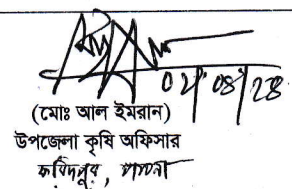 ০২/০৪/২৪
(মোঃ আল ইমরান)
উপজেলা কৃষি অফিসার
ফরিদপুর, পাবনা